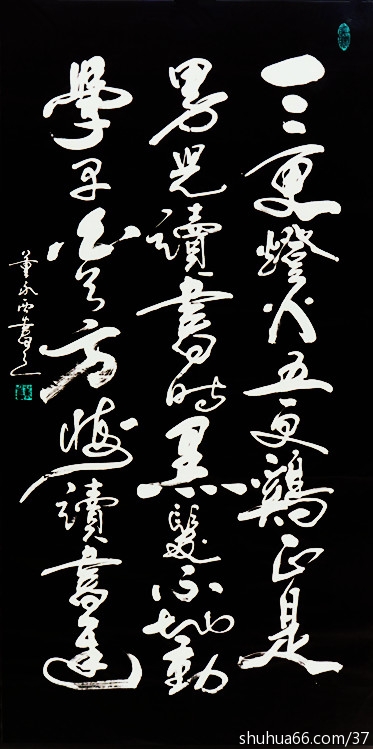 三更燈火五更鷄正是
男兒讀書時黑髮不知勤
學早白首方悔讀書遲
董永西書
shuhua66.com/37